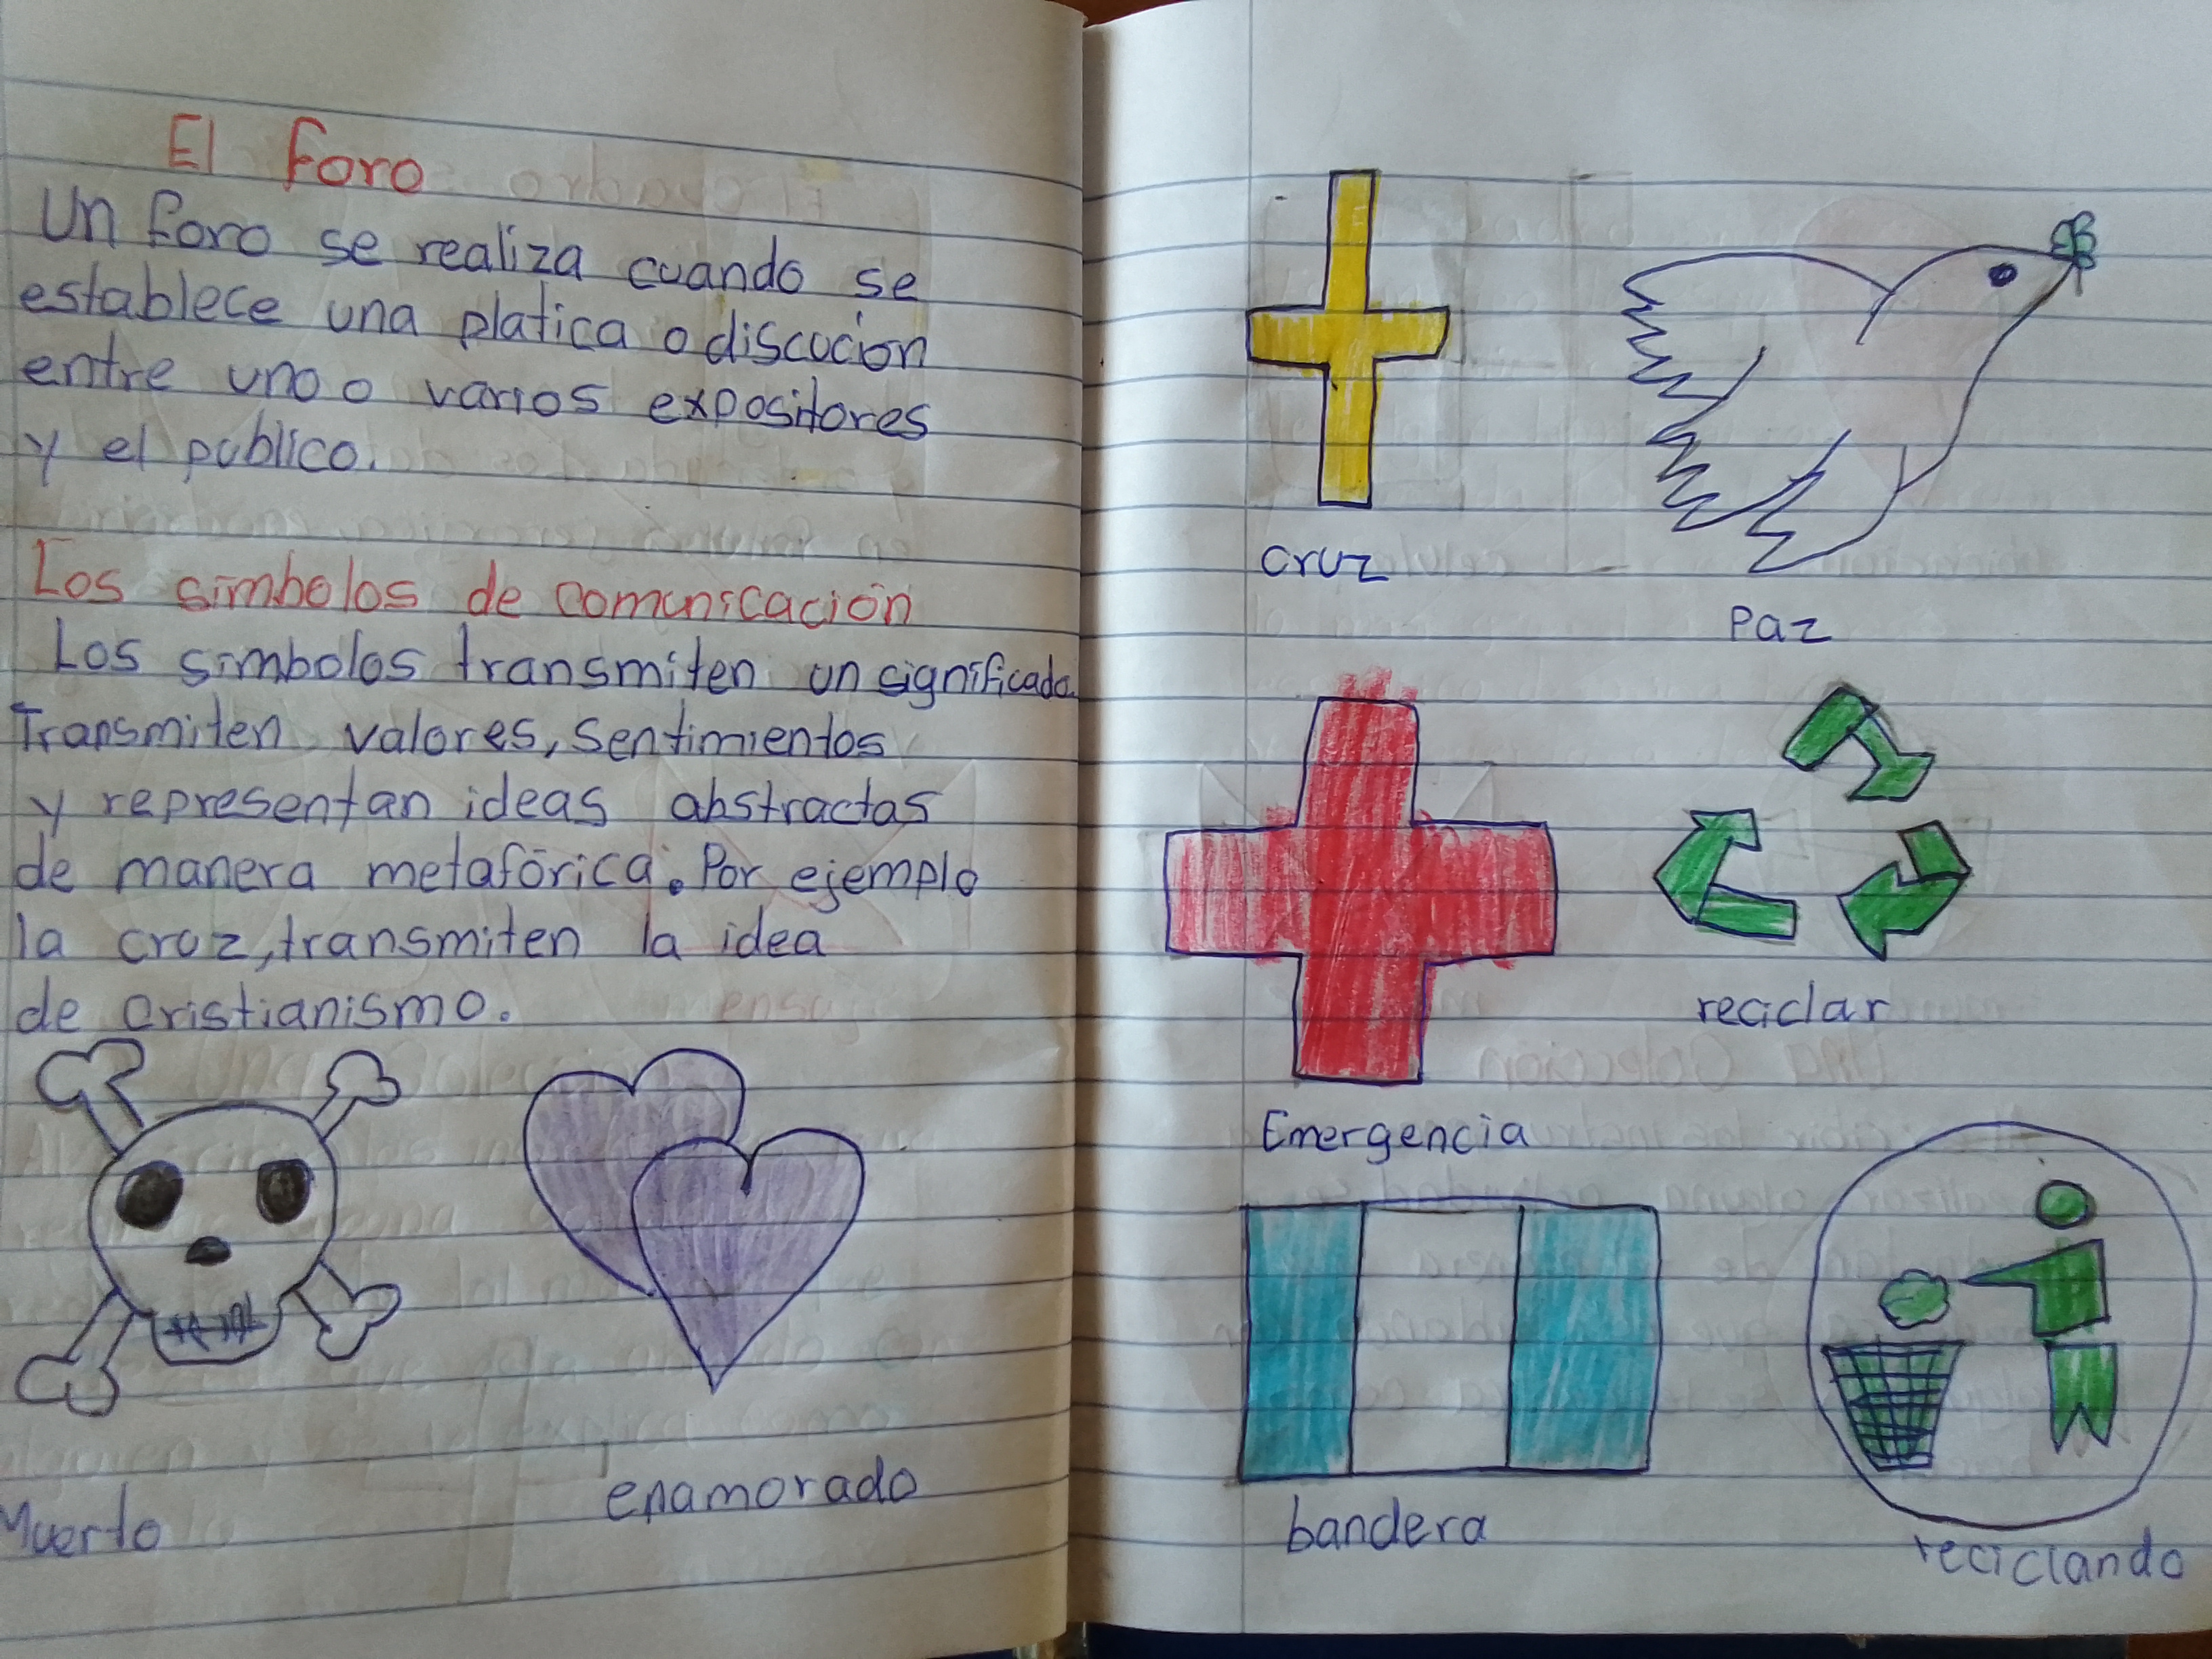 El foro
Un foro se realiza cuando se
establece una platica o discución
entre uno o varios expositores
y el publico.
Los simbolos de comunicación
Los simbolos transmiten un significado.
Transmiten valores, sentimientos
y representan ideas abstractas
de manera metafórica. Por ejemplo
la cruz, transmiten la idea
de cristianismo.
Muerto
enamorado
cruz
Paz
Emergencia
reciclar
bandera
reciclando